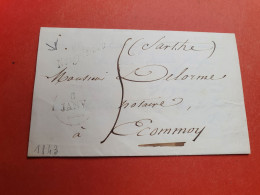 (Sarthe)
Monsieur Delorme
notaire,
à Ecommoy
5